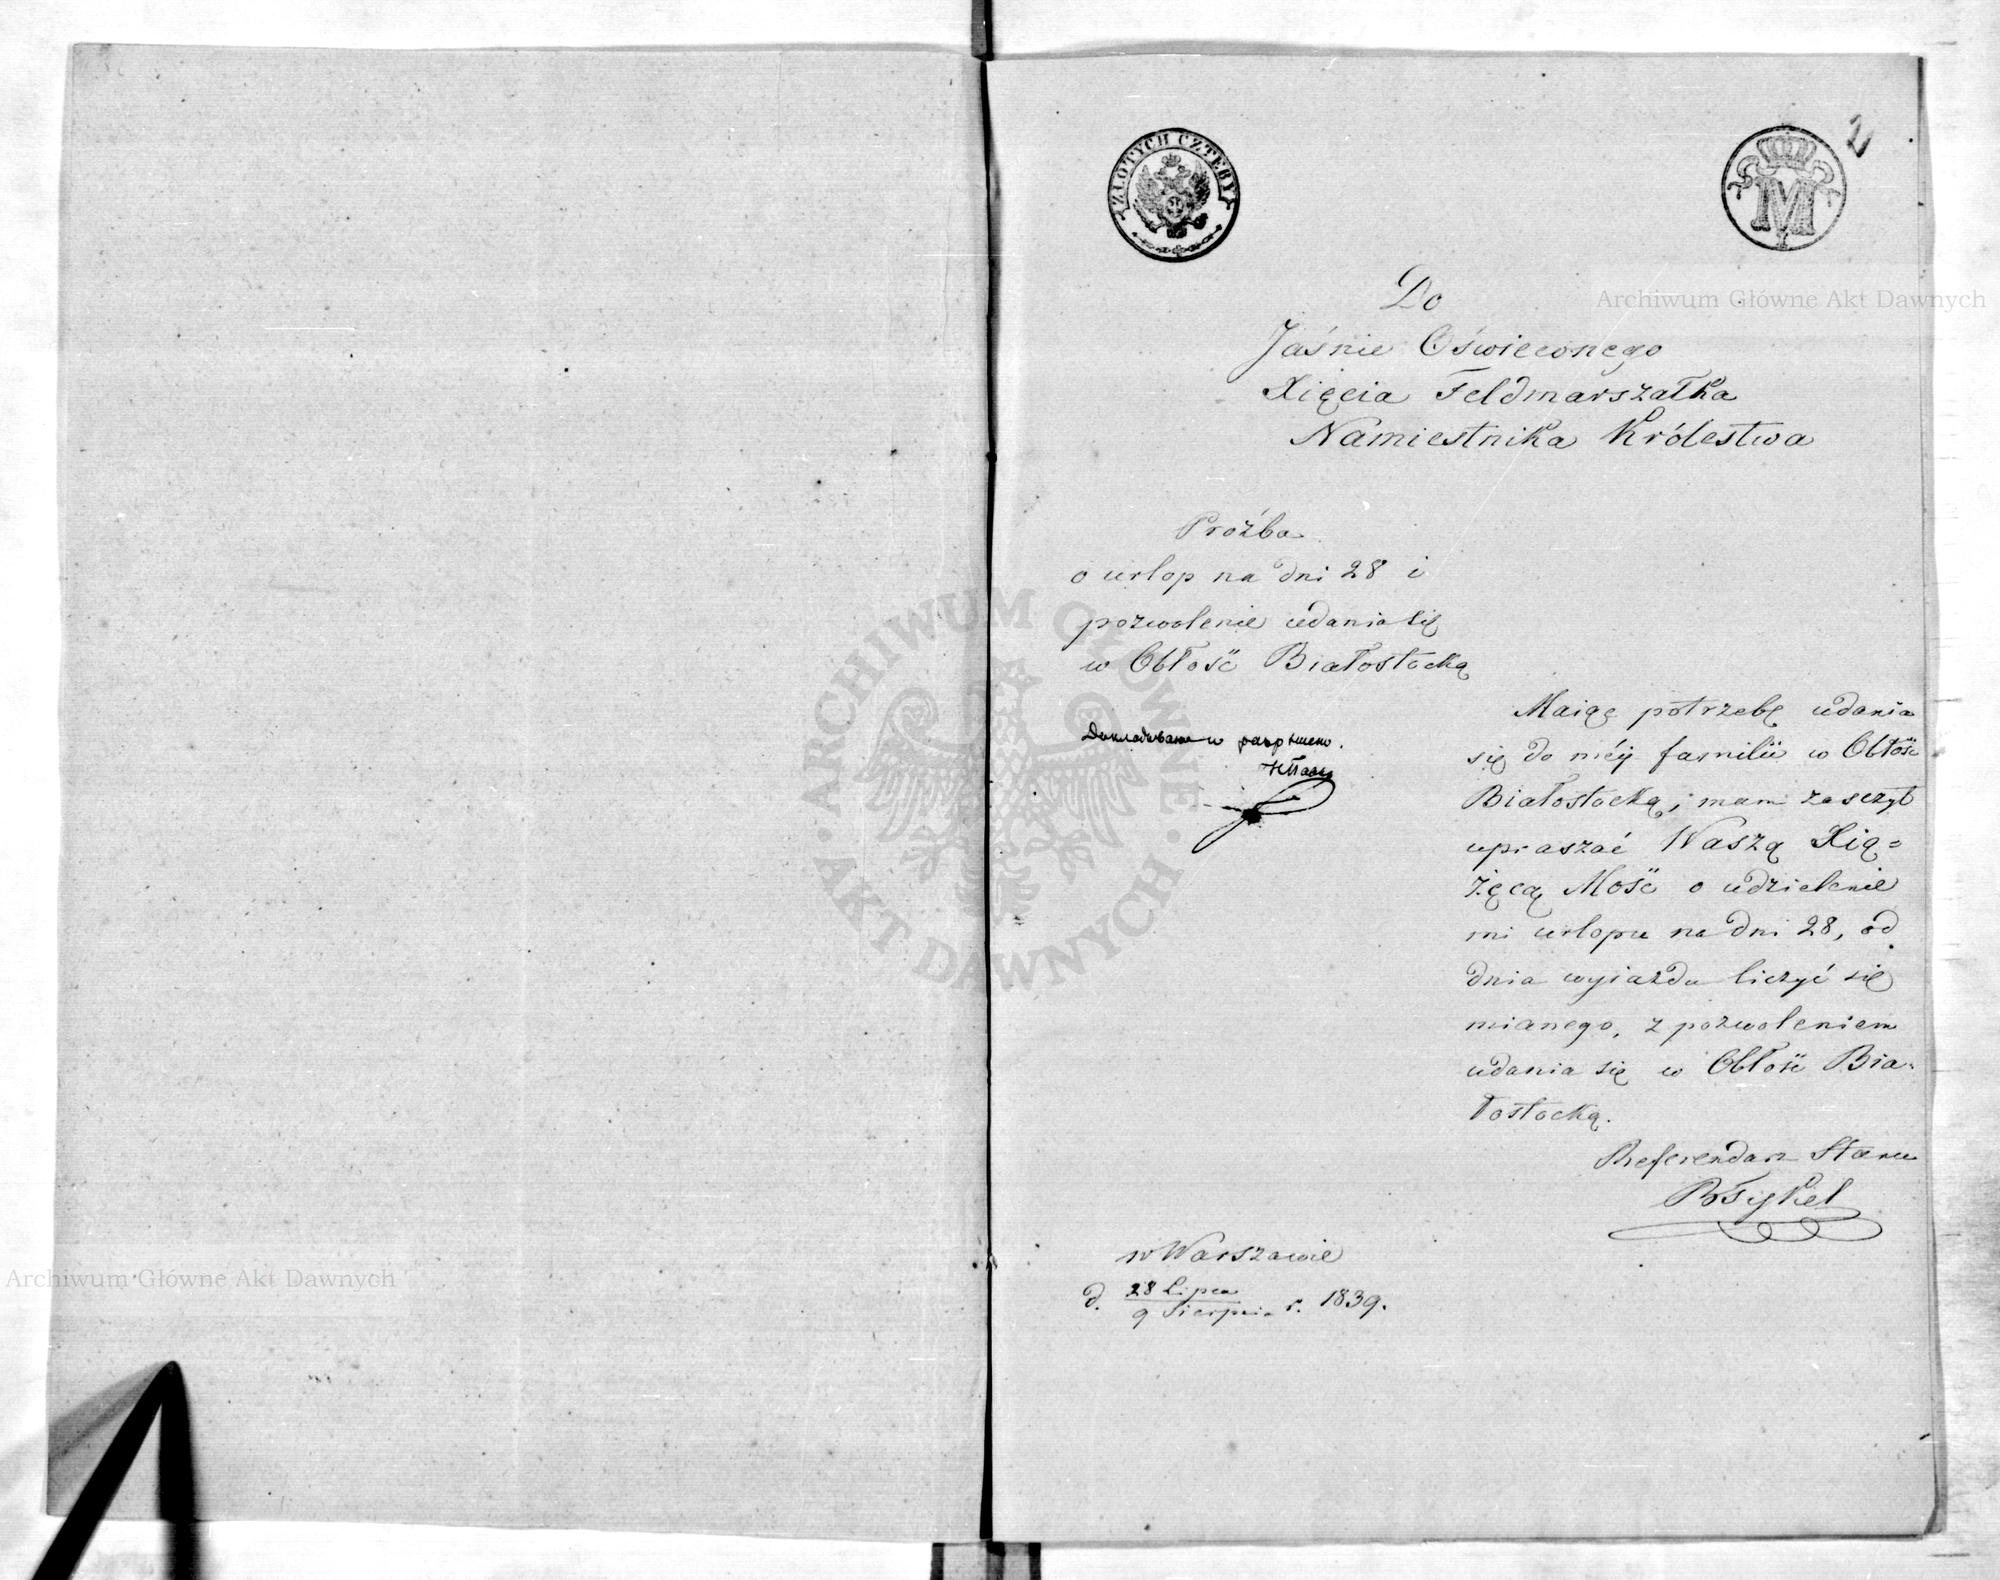 2
ZŁOTYCH CZTERY
M
Do
Jaśnie Oświeconego
Xięcia Feldmarszałka
Namiestnika Królestwa
Proźba
o urlop na dni 28 i
pozwolenie udania się
w Obłość Białostocką
Докладывано разрешено.
Maiąc potrzebę udania
się do méy familii w Obłość
Białostocką, mam zaszczyt
upraszać Waszą Xią=
żęcą Mość o udzielenie
mi urlopu na dni 28, od
dnia wyiazdu liczyć się
mianego, z pozwoleniem
udania się w Obłość Bia-
łostocką.
Referendarz Stanu
w Warszawie
d. 28 Lipca
9 Sierpnia r. 1839.
Archiwum Główne Akt Dawnych
Archiwum Główne Akt Dawnych
ARCHIWUM GŁÓWNE · AKT DAWNYCH ·